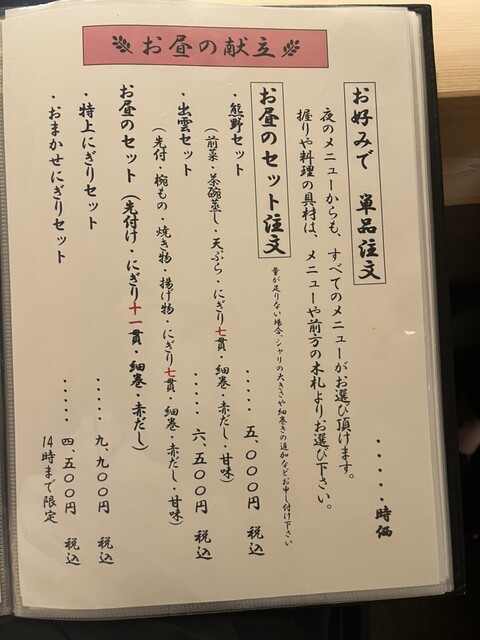 お昼の献立
お好みで 単品注文
・・・・・時価
夜のメニューからも、すべてのメニューがお選び頂けます。
握りや料理の具材は、メニューや前方の木札よりお選び下さい。
お昼のセット注文
量が足りない場合、シャリの大きさや細巻きの追加などお申し付け下さい
・熊野セット
・・・・・五、〇〇〇円 税込
(前菜・茶碗蒸し・天ぷら・にぎり七貫・細巻・赤だし・甘味)
・出雲セット
・・・・・六、五〇〇円 税込
(先付・椀もの・焼き物・揚げ物・にぎり七貫・細巻・赤だし・甘味)
お昼のセット(先付け・にぎり十一貫・細巻・赤だし)
・特上にぎりセット
・・・・・九、九〇〇円 税込
・おまかせにぎりセット
・・・・・四、五〇〇円 税込
14時まで限定